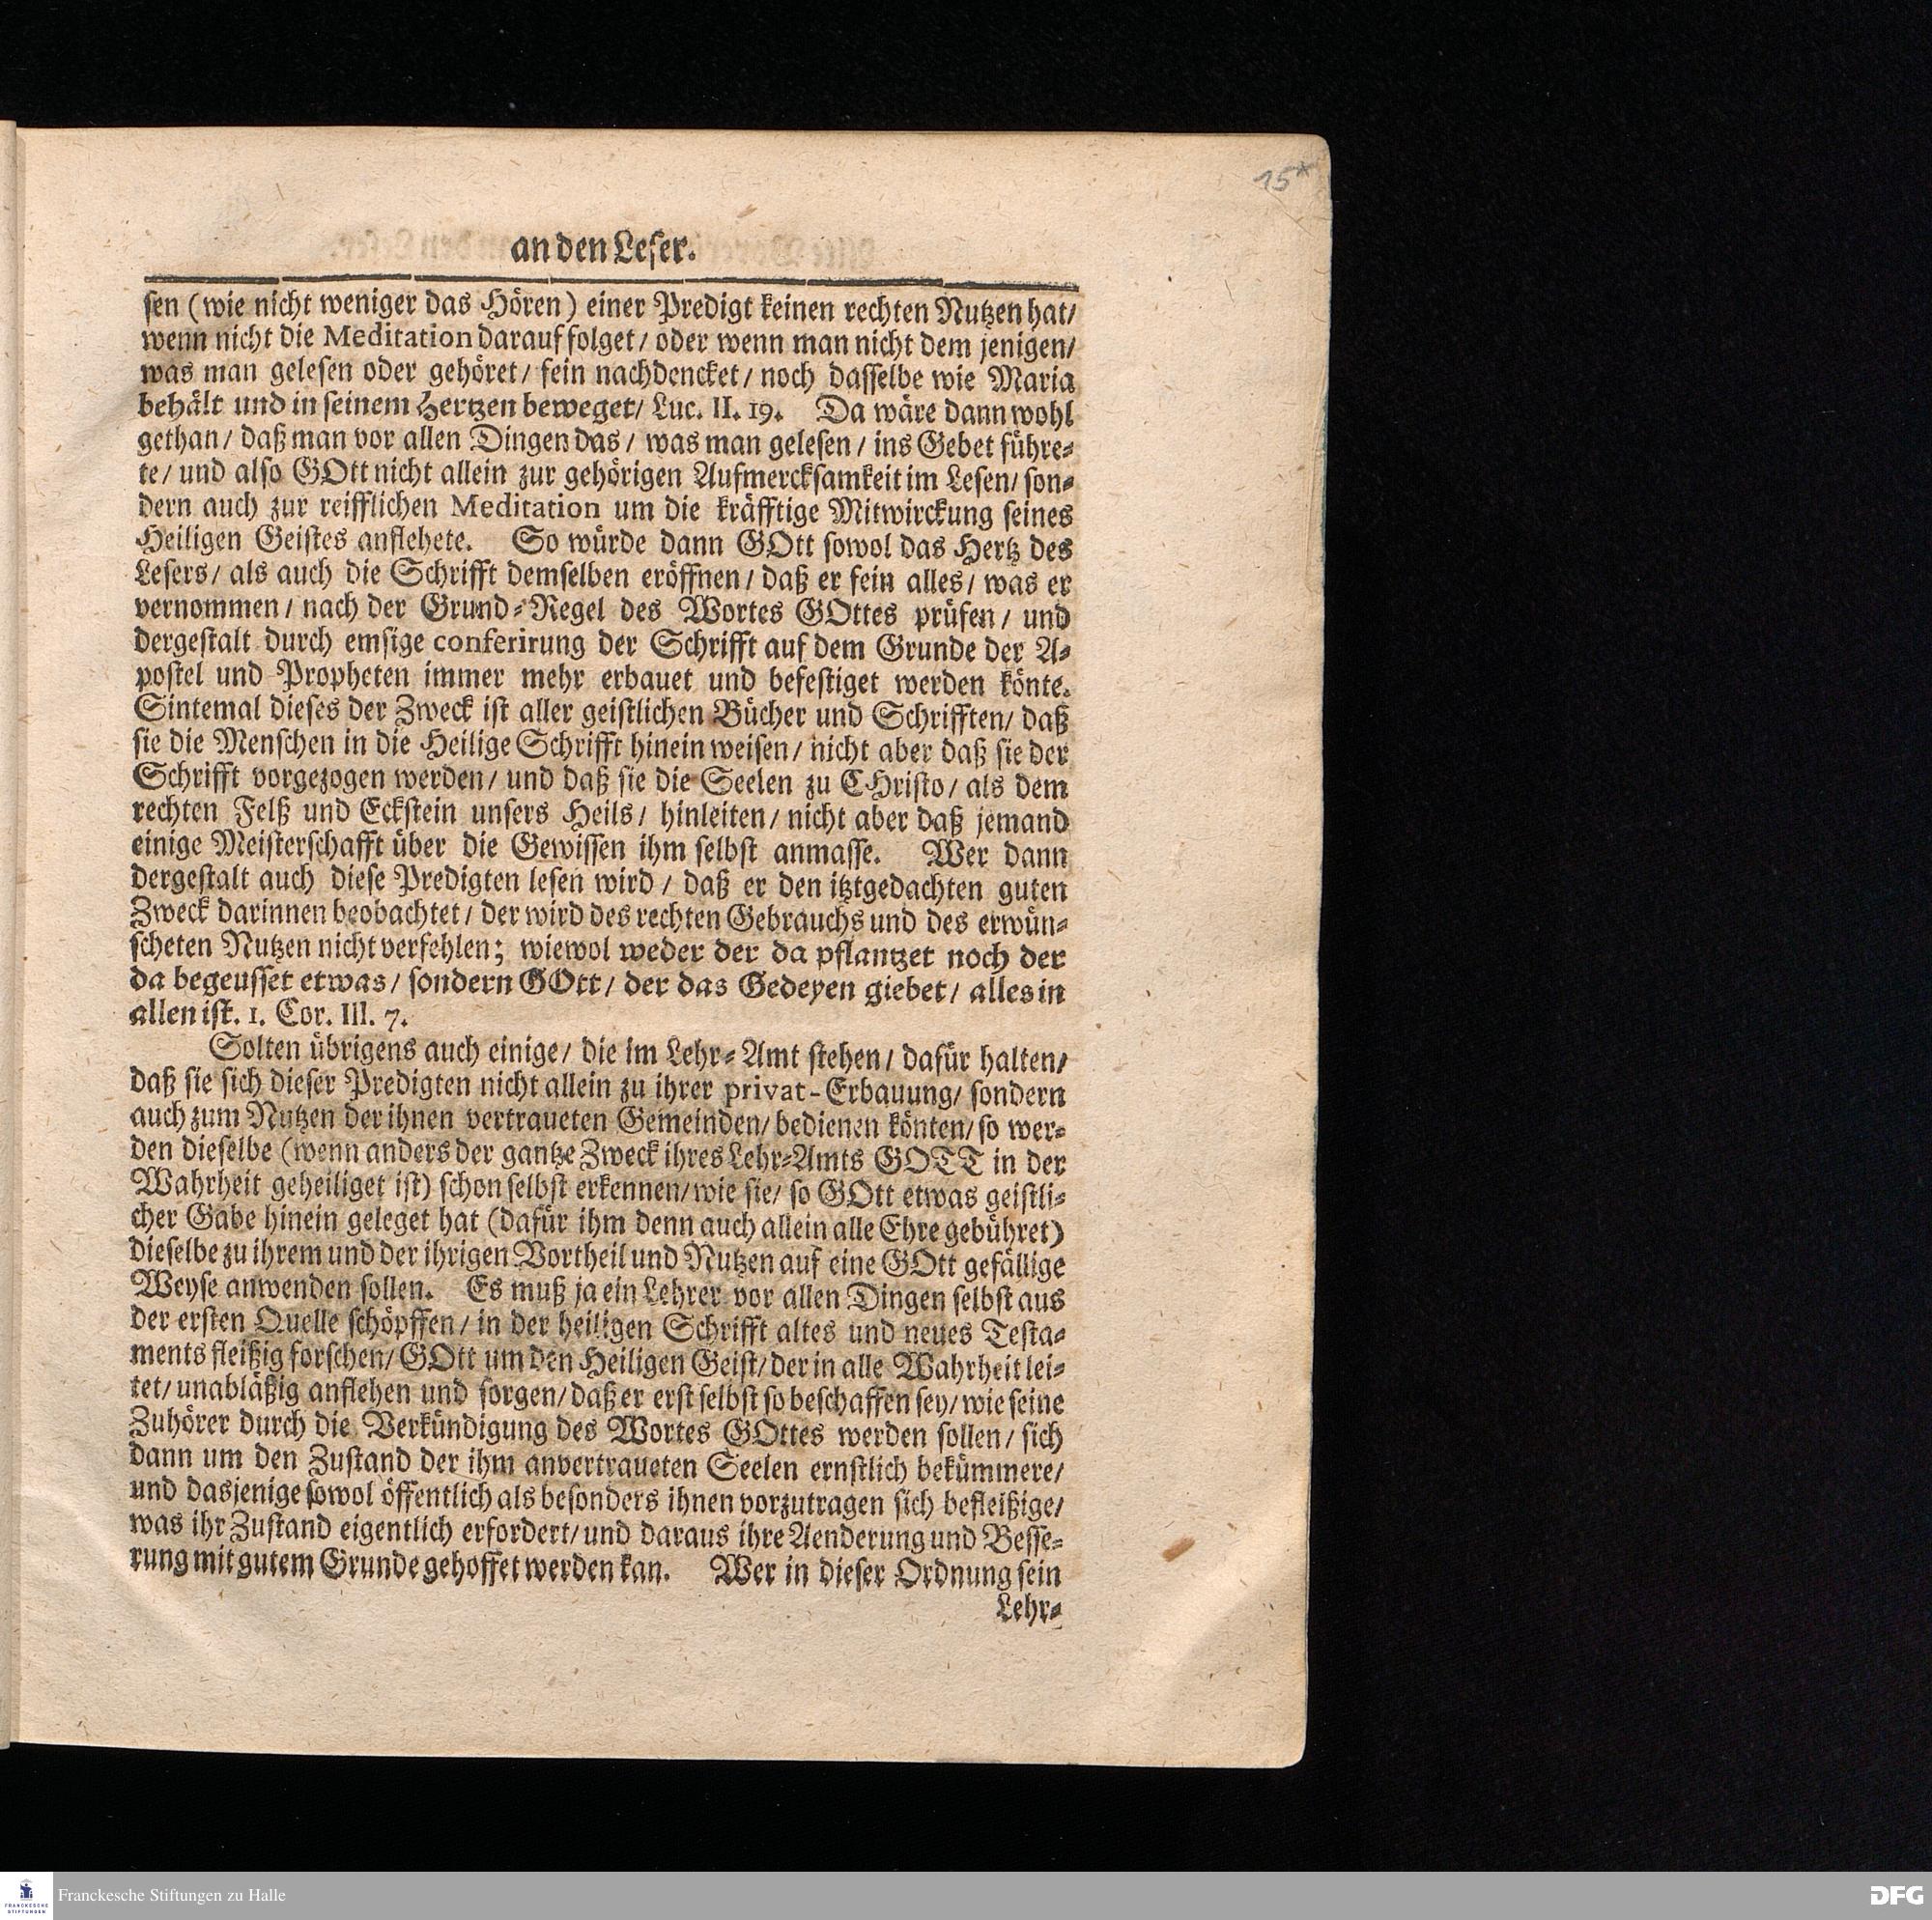 15*
an den Leſer.
ſen (wie nicht weniger das Hören) einer Predigt keinen rechten Nutzen hat/
wenn nicht die Meditation darauf folget/ oder wenn man nicht dem jenigen/
was man geleſen oder gehöret/ fein nachdencket/ noch daſſelbe wie Maria
behält und in ſeinem Hertzen beweget/ Luc. II. 19. Da wäre dann wohl
gethan/ daß man vor allen Dingen das/ was man geleſen/ ins Gebet führe⸗
te/ und alſo GOtt nicht allein zur gehörigen Aufmerckſamkeit im Leſen/ ſon⸗
dern auch zur reifflichen Meditation um die kräfftige Mitwirckung ſeines
Heiligen Geiſtes anflehete. So würde dann GOtt ſowol das Hertz des
Leſers/ als auch die Schrifft demſelben eröffnen/ daß er fein alles/ was er
vernommen/ nach der Grund⸗Regel des Wortes GOttes prüfen/ und
dergeſtalt durch emſige conferirung der Schrifft auf dem Grunde der A⸗
poſtel und Propheten immer mehr erbauet und befeſtiget werden könte.
Sintemal dieſes der Zweck iſt aller geiſtlichen Bücher und Schrifften/ daß
ſie die Menſchen in die Heilige Schrifft hinein weiſen/ nicht aber daß ſie der
Schrifft vorgezogen werden/ und daß ſie die Seelen zu CHriſto/ als dem
rechten Felß und Eckſtein unſers Heils/ hinleiten/ nicht aber daß jemand
einige Meiſterſchafft über die Gewiſſen ihm ſelbſt anmaſſe. Wer dann
dergeſtalt auch dieſe Predigten leſen wird/ daß er den itztgedachten guten
Zweck darinnen beobachtet/ der wird des rechten Gebrauchs und des erwün⸗
ſcheten Nutzen nicht verfehlen; wiewol weder der da pflantzet noch der
da begeuſſet etwas/ ſondern GOtt/ der das Gedeyen giebet/ alles in
allen iſt. 1. Cor. III. 7.
Solten übrigens auch einige/ die im Lehr⸗Amt ſtehen/ dafür halten/
daß ſie ſich dieſer Predigten nicht allein zu ihrer privat-Erbauung/ ſondern
auch zum Nutzen der ihnen vertraueten Gemeinden/ bedienen könten/ ſo wer⸗
den dieſelbe (wenn anders der gantze Zweck ihres Lehr⸗Amts GOTT in der
Wahrheit geheiliget iſt) ſchon ſelbſt erkennen/ wie ſie/ ſo GOtt etwas geiſtli⸗
cher Gabe hinein geleget hat (dafür ihm denn auch allein alle Ehre gebühret)
dieſelbe zu ihrem und der ihrigen Vortheil und Nutzen auf eine GOtt gefällige
Weyſe anwenden ſollen. Es muß ja ein Lehrer vor allen Dingen ſelbſt aus
der erſten Quelle ſchöpffen/ in der heiligen Schrifft altes und neues Teſta⸗
ments fleißig forſchen/ GOtt um den Heiligen Geiſt/ der in alle Wahrheit lei⸗
tet/ unabläßig anflehen und ſorgen/ daß er erſt ſelbſt ſo beſchaffen ſey/ wie ſeine
Zuhörer durch die Verkündigung des Wortes GOttes werden ſollen/ ſich
dann um den Zuſtand der ihm anvertraueten Seelen ernſtlich bekümmere/
und dasjenige ſowol öffentlich als beſonders ihnen vorzutragen ſich befleißige/
was ihr Zuſtand eigentlich erfordert/ und daraus ihre Aenderung und Beſſe⸗
rung mit gutem Grunde gehoffet werden kan. Wer in dieſer Ordnung ſein
Lehr⸗
FRANCKESCHE
STIFTUNGEN
Franckesche Stiftungen zu Halle
DFG